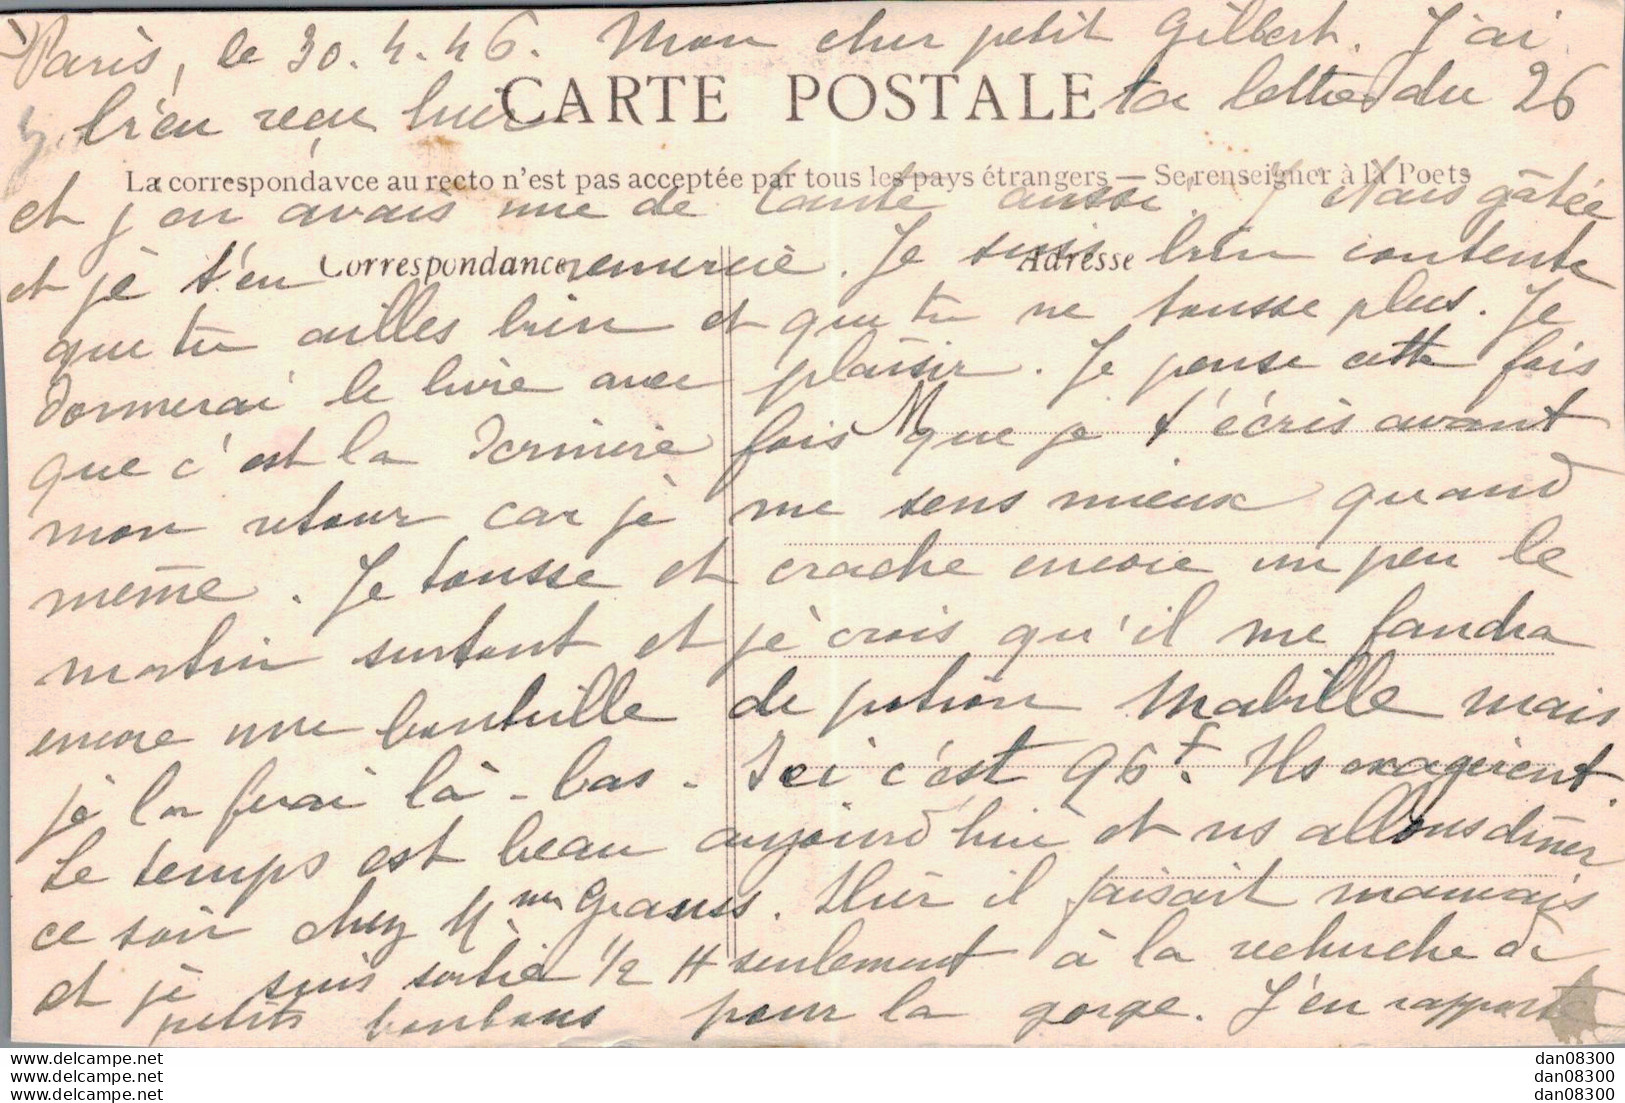 Paris, le 30.4.46. Mon cher petit Gilbert. J'ai
bien reçu hier ta lettre du 26
CARTE POSTALE
La correspondavce au recto n'est pas acceptée par tous les pays étrangers — Se renseigner à la Poets
et j'en avais une de tante aussi. J'étais gâtée
Correspondance
Adresse
et je t'en remercie. Je suis bien contente
que tu ailles bien et que tu ne tousse plus. Je
donnerai le livre avec plaisir. Je pense cette fois
M
que c'est la dernière fois que je t'écris avant
mon retour car je me sens mieux quand
même. Je tousse et crache encore un peu le
matin surtout et je crois qu'il me faudra
encore une bouteille de potion Mabille mais
je la ferai là-bas. Ici c'est 96f. Ils exagèrent.
Le temps est beau aujourd'hui et ns allons dîner
ce soir chez Mme . Hier il faisait mauvais
et je suis sortie 1/2 H seulement à la recherche de
petits bonbons pour la gorge. J'en rapporte
dan08300
dan08300
dan08300
www.delcampe.net
www.delcampe.net
www.delcampe.net